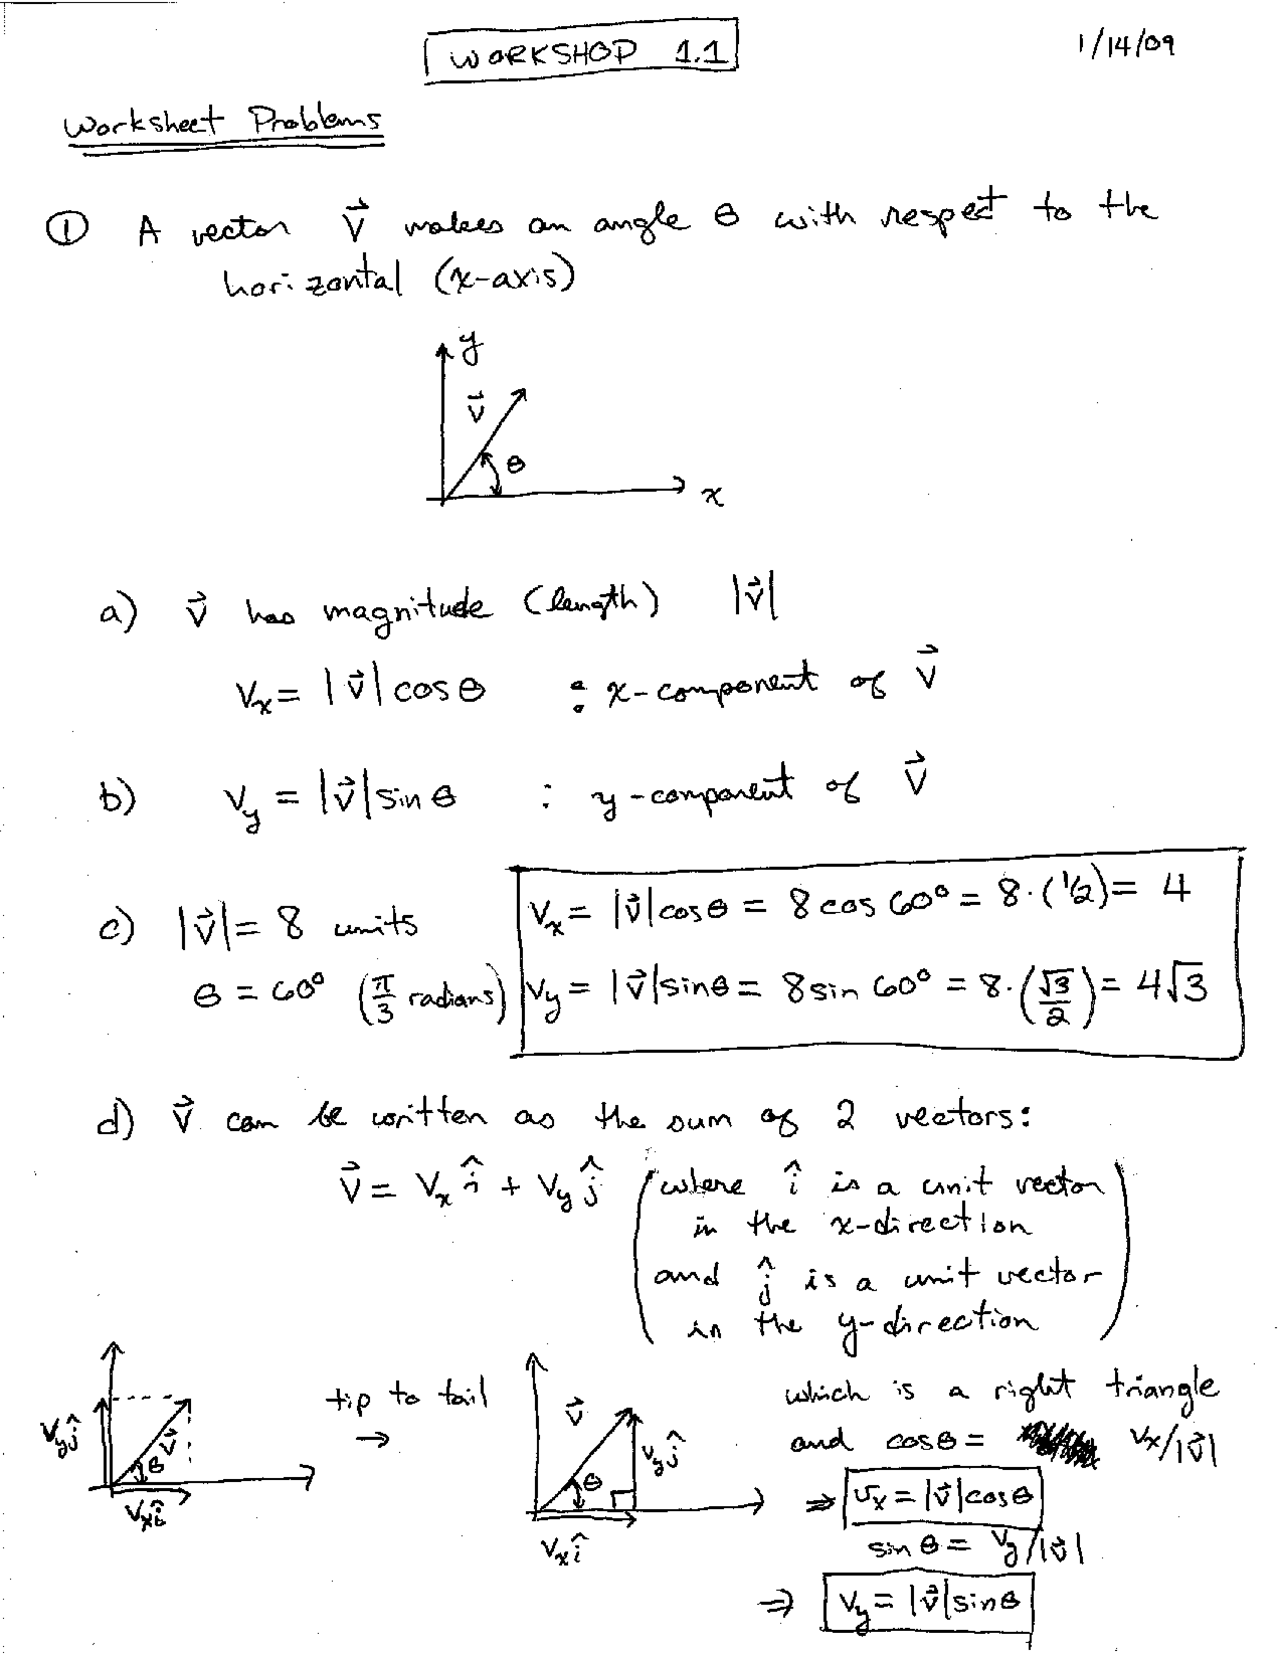 WORKSHOP 1.1
1/14/09
Worksheet Problems
① A vector V⃗ makes an angle θ with respect to the
horizontal (x-axis)
y
V⃗
θ
x
a) V⃗ has magnitude (length) |V⃗|
Vx = |V⃗| cos θ : x-component of V⃗
b) Vy = |V⃗| sin θ : y-component of V⃗
c) |V⃗| = 8 units
θ = 60° (π/3 radians)
Vx = |V⃗| cos θ = 8 cos 60° = 8·(1/2) = 4
Vy = |V⃗| sin θ = 8 sin 60° = 8·(√3/2) = 4√3
d) V⃗ can be written as the sum of 2 vectors:
V⃗ = Vx î + Vy ĵ (where î is a unit vector
in the x-direction
and ĵ is a unit vector
in the y-direction)
Vy ĵ
V⃗
θ
Vx î
tip to tail
→
V⃗
Vy ĵ
θ
Vx î
which is a right triangle
and cos θ = Vx/|V⃗|
⇒ Vx = |V⃗| cos θ
sin θ = Vy/|V⃗|
⇒ Vy = |V⃗| sin θ